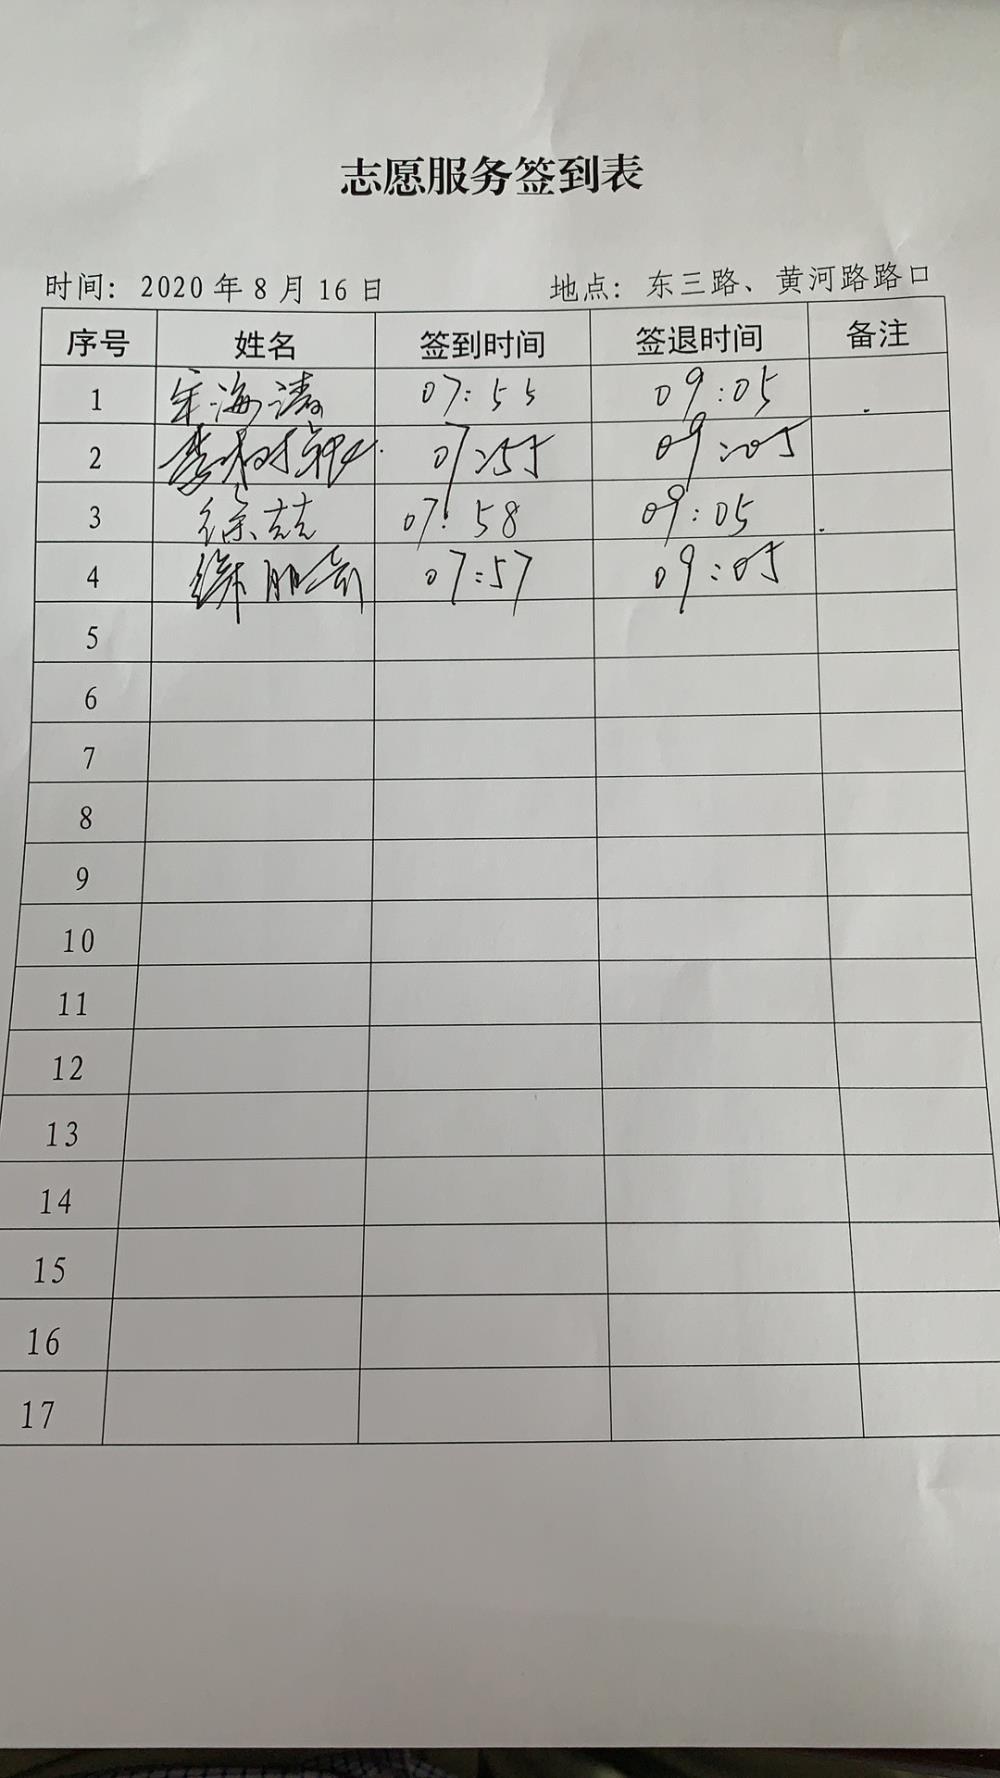 志愿服务签到表
时间：2020年8月16日 地点：东三路、黄河路路口
序号 姓名 签到时间 签退时间 备注
1 宋海涛 07:55 09:05
2 李树 07:55 09:05
3 徐喆 07:58 09:05
4 07:57 09:05
5
6
7
8
9
10
11
12
13
14
15
16
17